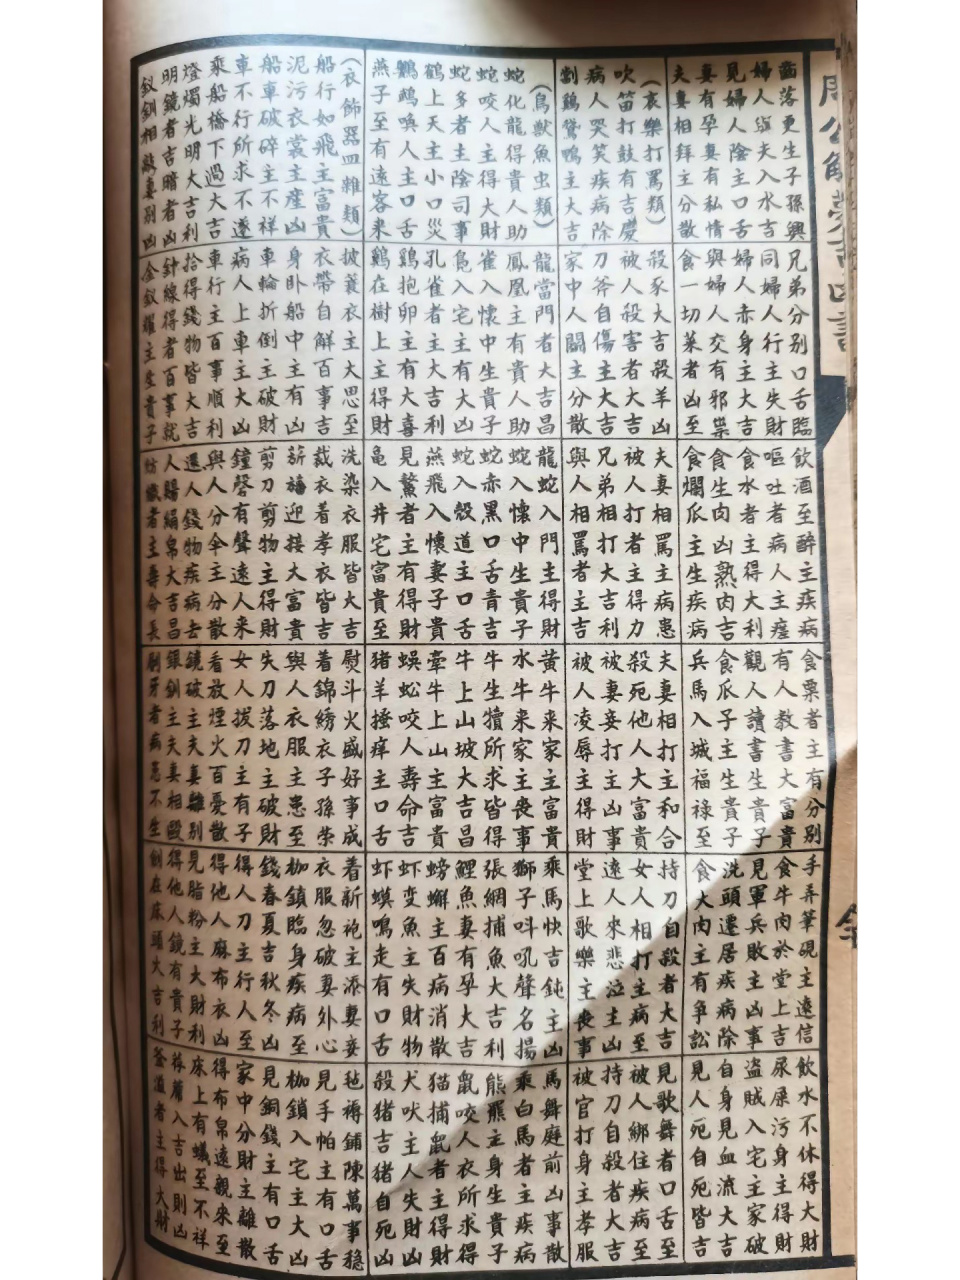 周公解夢吉凶書 全
齒落更生子孫興 兄弟分别口舌臨 飲酒至醉主疾病 食栗者主有分别 手弄筆硯主遠信 飲水不休得大財
婦人與夫入水吉 同婦人行主失財 嘔吐者病人主瘥 有人教書大富貴 食牛肉於堂上吉 尿屎污身主得財
見婦人陰主口舌 婦人赤身主大吉 食水者主得大利 觀人讀書生貴子 見軍兵敗主凶事 盜賊入宅主家破
妻有孕妻有私情 與婦人交有邪祟 食生肉凶熟肉吉 食瓜子主生貴子 洗頭遷居疾病除 自身見血流大吉
夫妻相拜主分散 食一切菜者凶至 食爛瓜主生疾病 兵馬入城福祿至 食犬肉主有爭訟 見人死自死皆吉
(哀樂打罵類) 殺豕大吉殺羊凶 夫妻相罵主病患 夫妻相打主和合 持刀自殺者大吉 見歌舞者口舌至
吹笛打鼓有吉慶 被人殺害者大吉 被人打者主得力 殺死他人大富貴 女人相打生病至 被人綁住疾病至
病人哭笑疾病除 刀斧自傷主大吉 兄弟相打大吉利 被妻妾打主凶事 遠人來悲泣主凶 持刀自殺者大吉
劏鷄鵞鴨主大吉 家中人鬪主分散 與人相罵者主吉 被人凌辱主得財 堂上歌樂主喪事 被官打身主孝服
(鳥獸魚虫類) 龍當門者大吉昌 龍蛇入門主得財 黃牛来家主富貴 乘馬快吉鈍主凶 馬舞庭前凶事散
蛇化龍得貴人助 鳳凰主有貴人助 蛇入懷中生貴子 水牛来家主喪事 獅子叫吼聲名揚 乘白馬者主疾病
蛇咬人主得大財 雀入懷中生貴子 蛇赤黑口舌青吉 牛生犢所求皆得 張網捕魚大吉利 熊羆主身生貴子
蛇多者主陰司事 鳧入宅主有大凶 蛇入穀道主口舌 牛上山坡大吉昌 鯉魚妻有孕大吉 鼠咬人衣所求得
鶴上天主小口災 孔雀者主大吉利 燕飛入懷妻子貴 牽牛上山主富貴 螃蟹主百病消散 猫捕鼠者主得財
鸚鵡喚人主口舌 鷄抱卵主有大喜 見鷩者主有得財 蜈蚣咬人壽命吉 虾变魚主失財物 犬吠主人失財凶
燕子至有遠客来 鷄在樹上主得財 龜入井宅富貴至 猪羊搔痒主口舌 虾蟆鳴走有口舌 殺猪吉猪自死凶
(衣飾器皿雜類) 披蓑衣主大思至 洗染衣服皆大吉 熨斗火盛好事成 着新袍主添妻妾 毡褥鋪陳萬事穩
船行如飛主富貴 衣帶自解百事吉 裁衣着孝衣皆吉 着錦綉衣子孫榮 衣服忽破妻外心 見手帕主有口舌
泥污衣裳主産凶 身卧船中主有凶 薪蓆迎接大富貴 與人衣服主患至 枷鎖臨身疾病至 枷鎖入宅主大凶
船車破碎主不祥 車輪折倒主破財 剪刀剪物主得財 失刀落地主破財 錢春夏吉秋冬凶 見銅錢主有口舌
車不行所求不遂 病人上車主大凶 鐘磬有聲遠人来 女人拔刀主有子 得人刀主行人至 家中分財主離散
乘船橋下過大吉 車行主百事順利 與人分傘主分散 看放煙火百憂散 得他人麻布衣凶 得布帛遠親來至
燈燭光明大吉利 拾得錢物皆大吉 還人錢物疾病去 鏡破主夫妻離别 見脂粉主大財利 床上有蟻至不祥
明鏡者吉暗者凶 針線得者百事就 人賜絹帛大吉昌 銀釧主夫妻相毆 得他人鏡有貴子 荐蓆入吉出則凶
釵釧相敲妻别凶 金釵耀主生貴子 紡織者主壽命長 刷牙者病患不生 劍在床頭大吉利 釜溢者主得大財